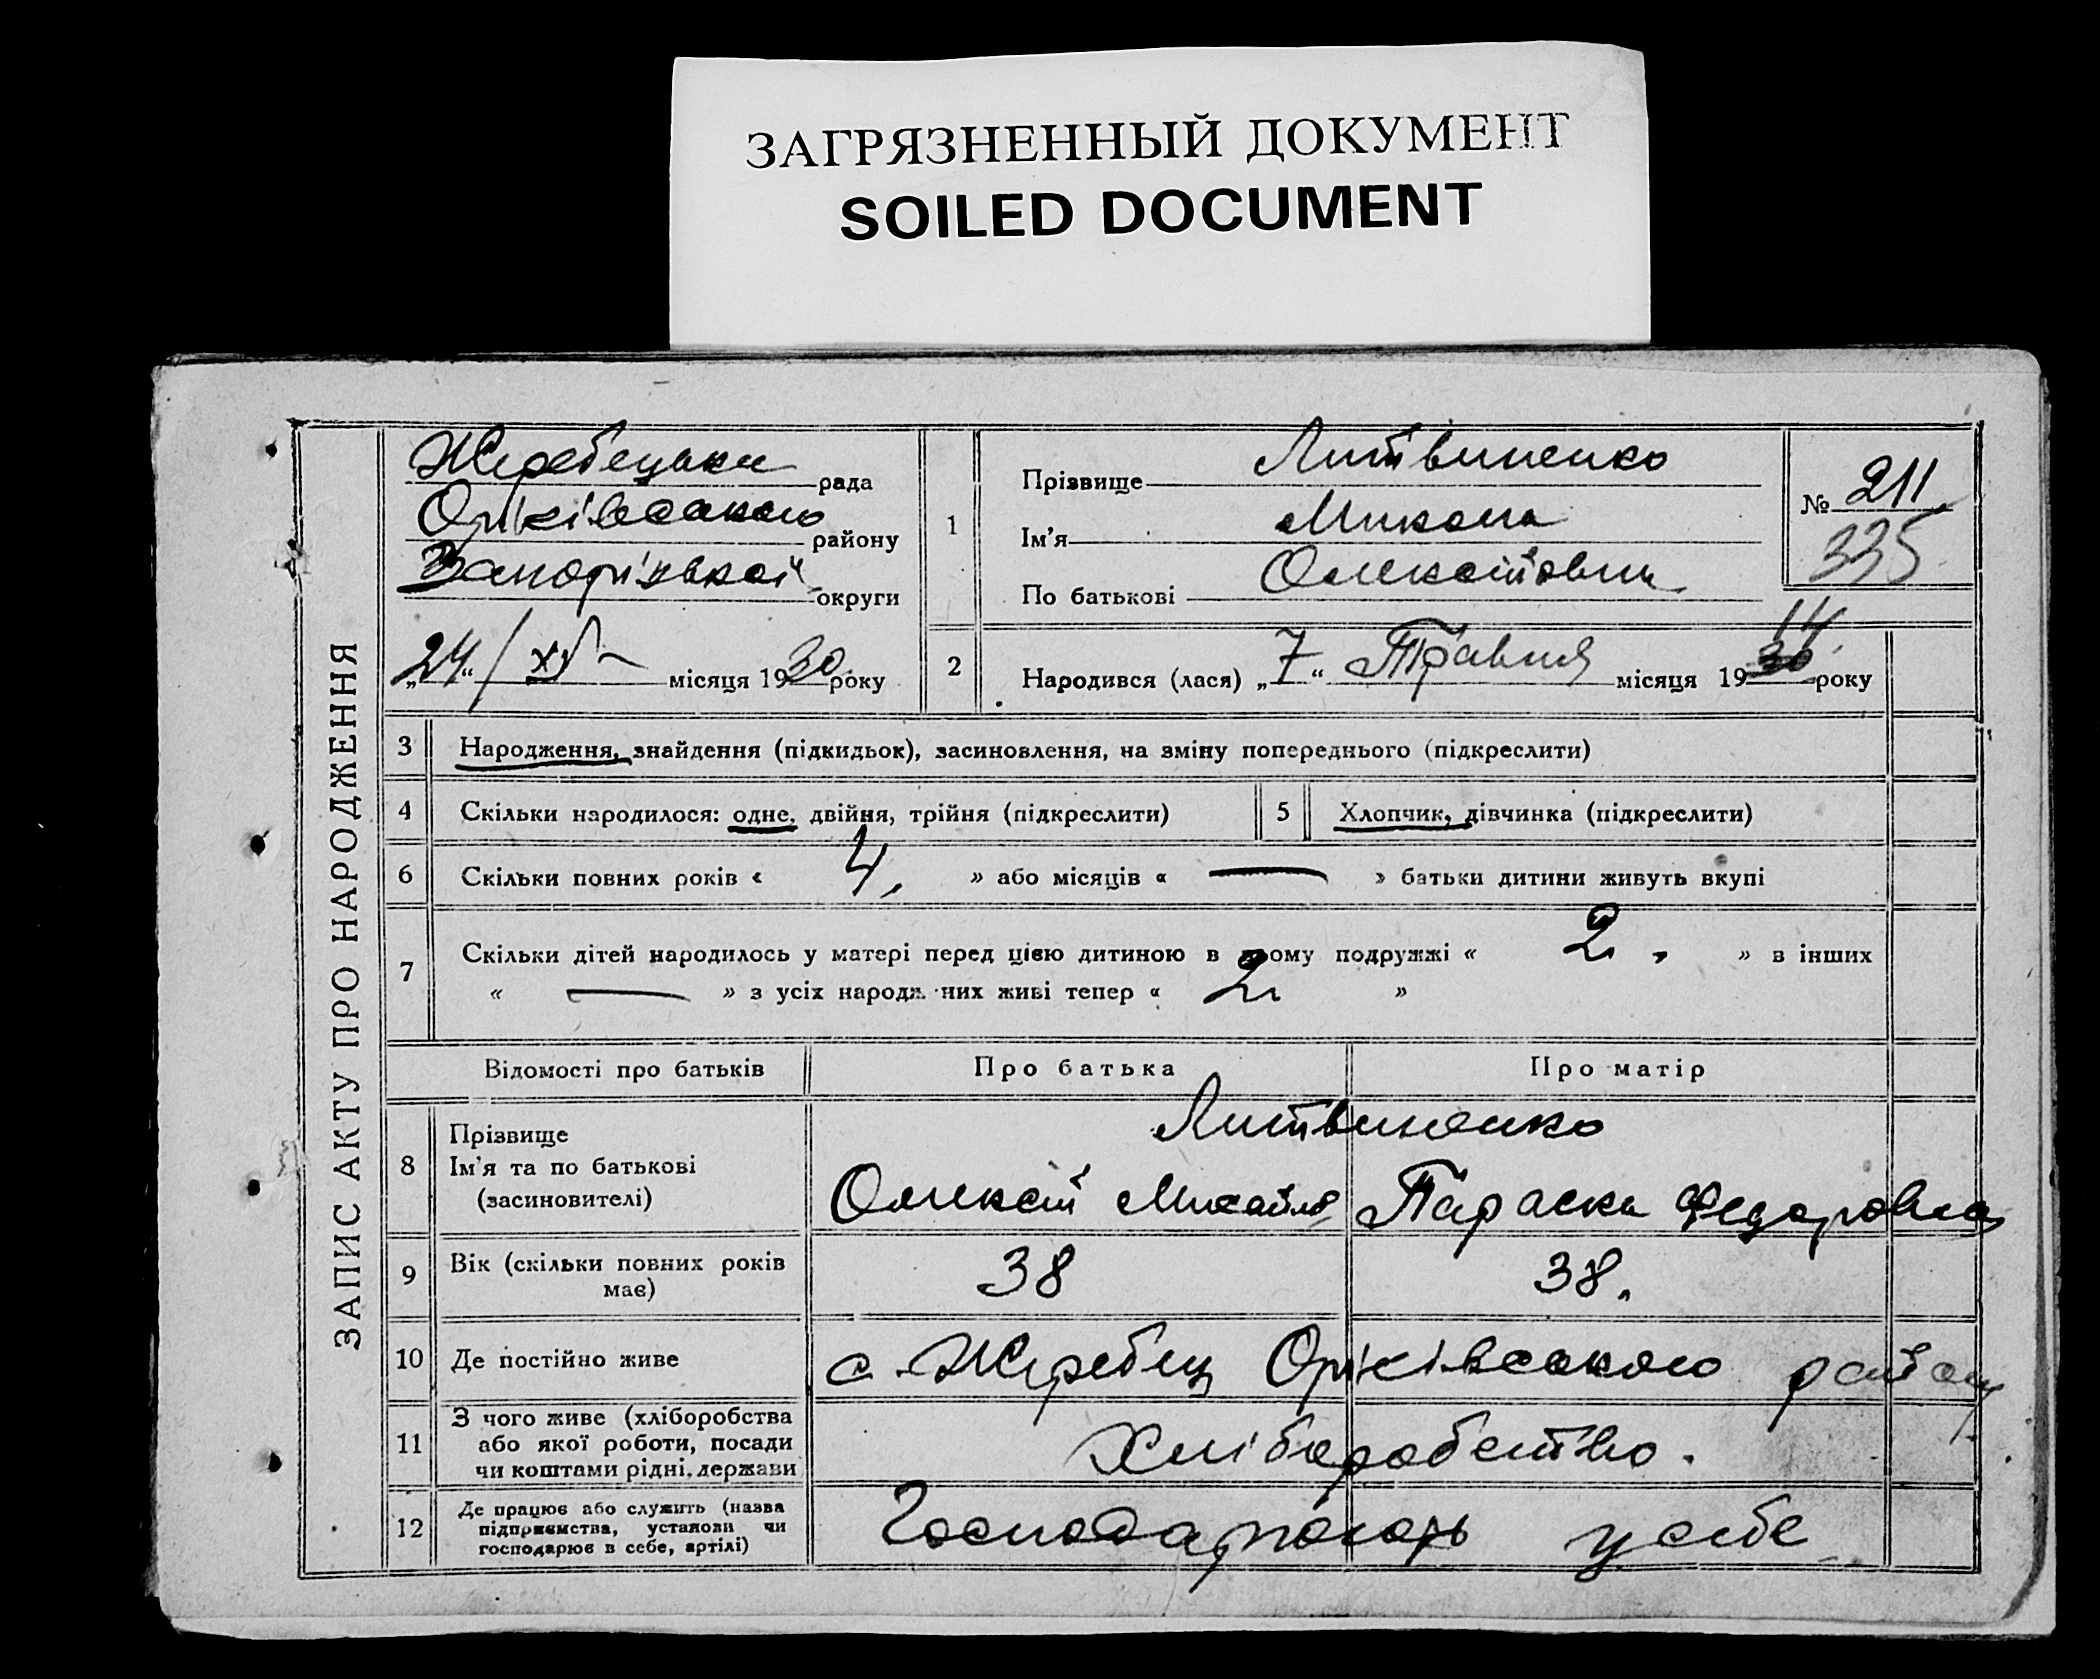 ЗАГРЯЗНЕННЫЙ ДОКУМЕНТ
SOILED DOCUMENT
ЗАПИС АКТУ ПРО НАРОДЖЕННЯ
Жеребецька рада
Оріхівського району
Запоріжської округи
„24“ / XI - місяця 1930 року
1
Прізвище Литвиненко
Ім'я Микола
По батькові Олексійович
№ 211
335
2
Народився (лася) „7“ Травня місяця 19 30 14 року
3 Народження, знайдення (підкидьок), засиновлення, на зміну попереднього (підкреслити)
4 Скільки народилося: одне, двійня, трійня (підкреслити)
5 Хлопчик, дівчинка (підкреслити)
6 Скільки повних років « 4. » або місяців « — » батьки дитини живуть вкупі
7 Скільки дітей народилось у матері перед цією дитиною в цьому подружжі « 2. » в інших
« — » з усіх народжених живі тепер « 2 »
Відомості про батьків Про батька Про матір
8 Прізвище
Ім'я та по батькові
(засиновителі)
Литвиненко
Олексій Михайло Параска Федоровна
9 Вік (скільки повних років
має)
38 38.
10 Де постійно живе с. Жеребец Оріхівського району
11 З чого живе (хліборобства
або якої роботи, посади
чи коштами рідні, держави
Хліборобство.
12 Де працює або служить (назва
підприємства, установи чи
господарює в себе, артілі)
Господарюють у себе